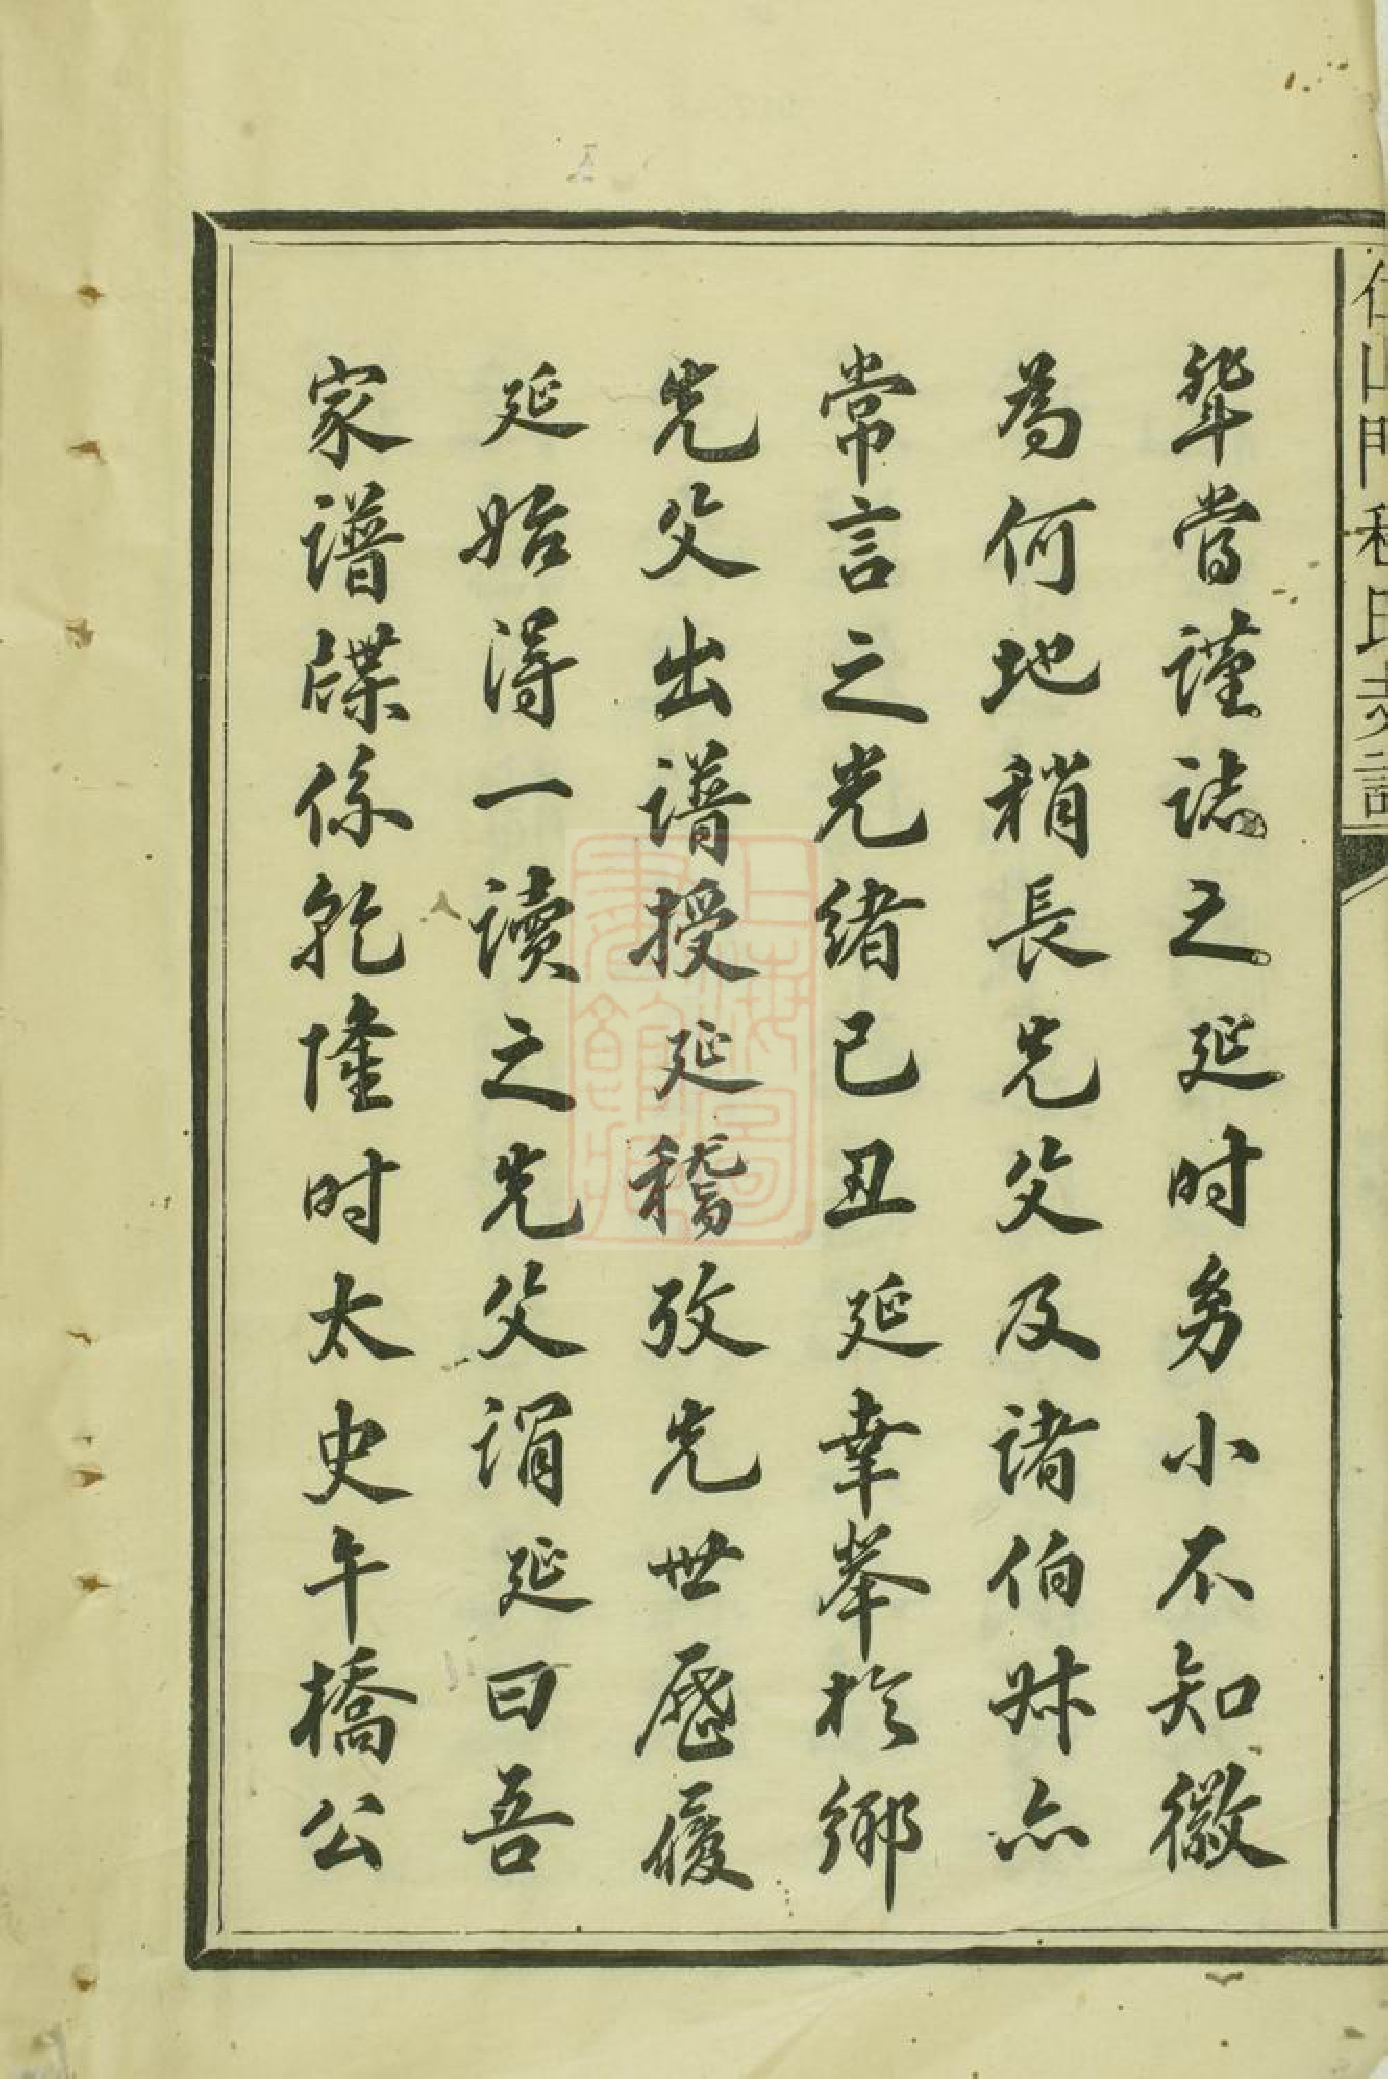 輩當謹誌之延时幼小不知徽
為何地稍長先父及諸伯叔亦
常言之光緒己丑延幸舉於鄉
先父出譜授延稽攷先世歷履
延始得一讀之先父謂延曰吾
家譜牒係乾隆时太史午橋公
上海圖書館藏